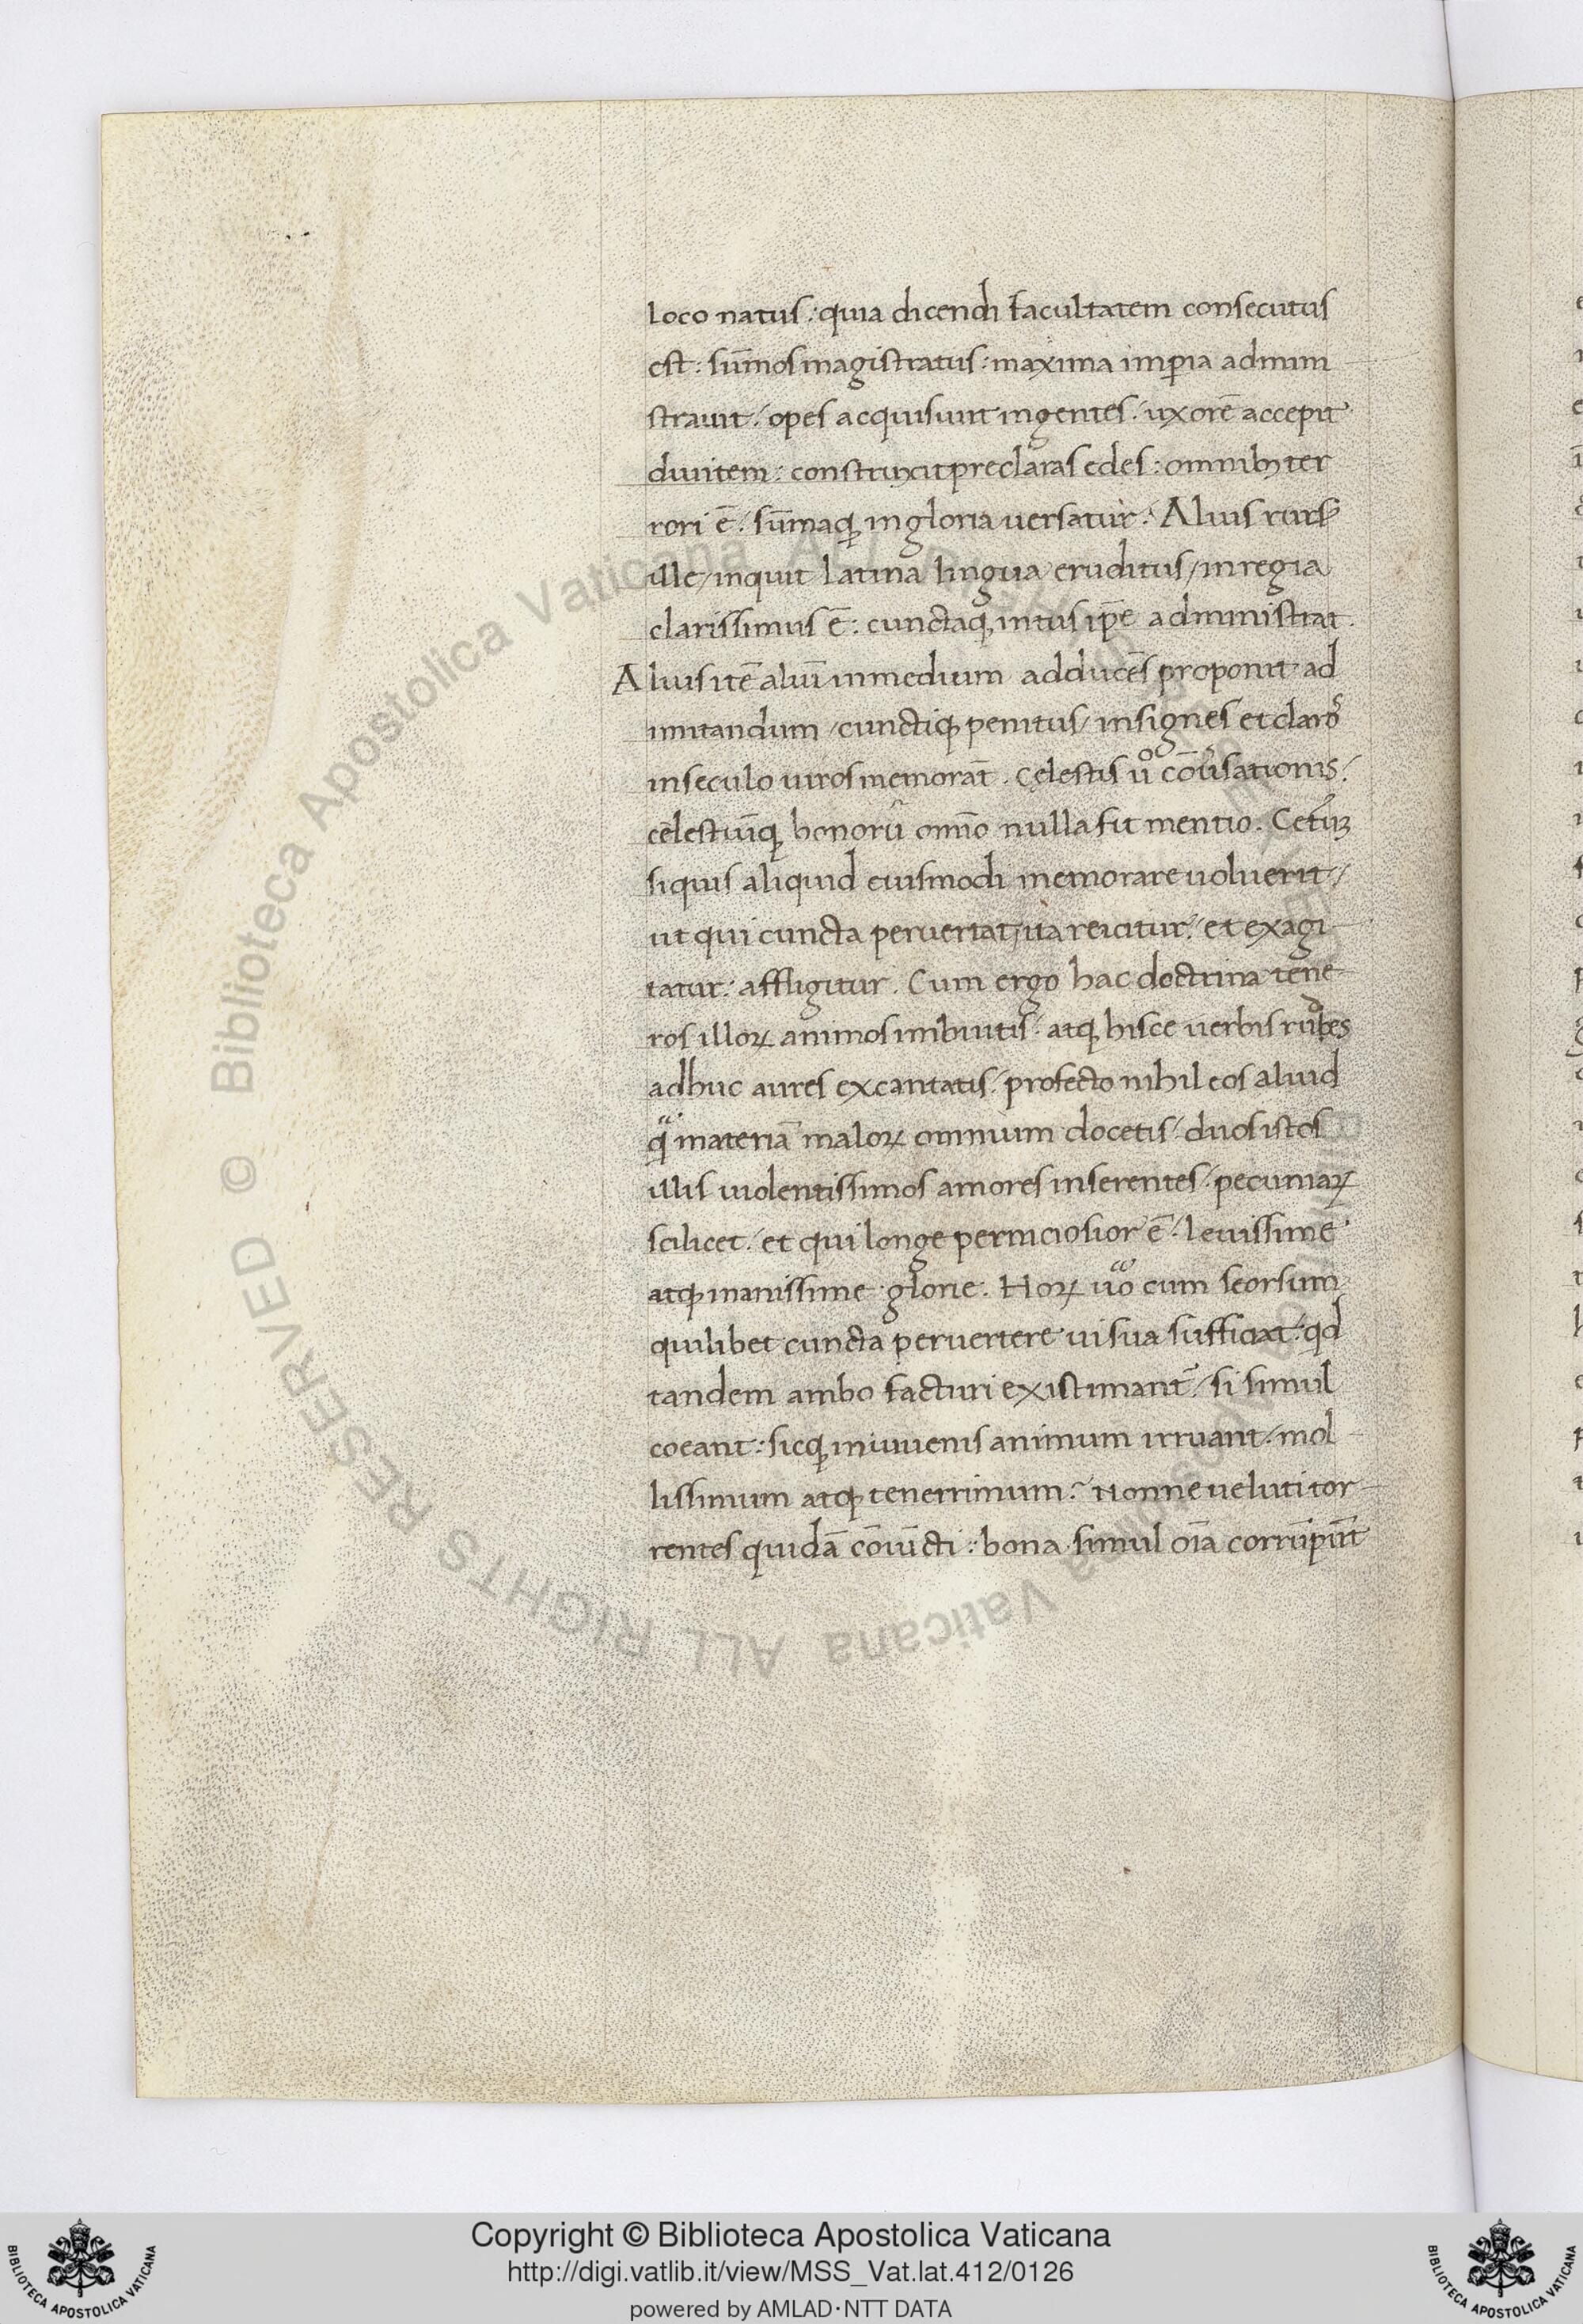 loco natus: quia dicendi facultatem consecutus
est: sūmos magistratus: maxima imꝑia admini
strauit: opes acquisiuit ingentes: uxorē accepit
diuitem: construxit preclaras edes: omnibꝫ ter
rori ē: sūmaqꝫ in gloria uersatur: Alius rursꝰ
ille/ inquit latina lingua eruditus/ in regia
clarissimus ē: cunctaqꝫ intus ip̄e administrat.
Alius itē aliū in medium adducēs proponit ad
imitandum/ cunctiqꝫ penitus/ insignes et claros
in seculo uiros memorāt. Cęlestis uͦ cōuͥsationis:
cęlestiūqꝫ bonorū om̄o nulla fit mentio. Cetꝵꝫ
siquis aliquid eiusmodi memorare uoluerit/
ut qui cuncta peruertat/ ita reicitur: et exagi
tatur: affligitur. Cum ergo hac doctrina tene
ros illoꝝ animos imbuitis: atqꝫ hisce uerbis rudes
adhuc aures excantatis: profecto nihil eos aliud
qᷓ materiā maloꝝ omnium docetis: duos istos
illis uiolentissimos amores inserentes: pecuniaꝝ
scilicet: et qui longe perniciosior ē: leuissime
atqꝫ inanissime glorie. Hoꝝ uo cum seorsum
quilibet cuncta peruertere ui sua sufficiat: qd
tandem ambo facturi existimant᷑: si simul
coeant: sicqꝫ in iuuenis animum irruant: mol
lissimum atqꝫ tenerrimum: nonne ueluti tor
rentes quidā cōiūcti: bona simul oīa corrūpūt
Copyright © Biblioteca Apostolica Vaticana
http://digi.vatlib.it/view/MSS_Vat.lat.412/0126
powered by AMLAD·NTT DATA
BIBLIOTECA APOSTOLICA VATICANA
BIBLIOTECA APOSTOLICA VATICANA
© Biblioteca Apostolica Vaticana ALL RIGHTS RESERVED